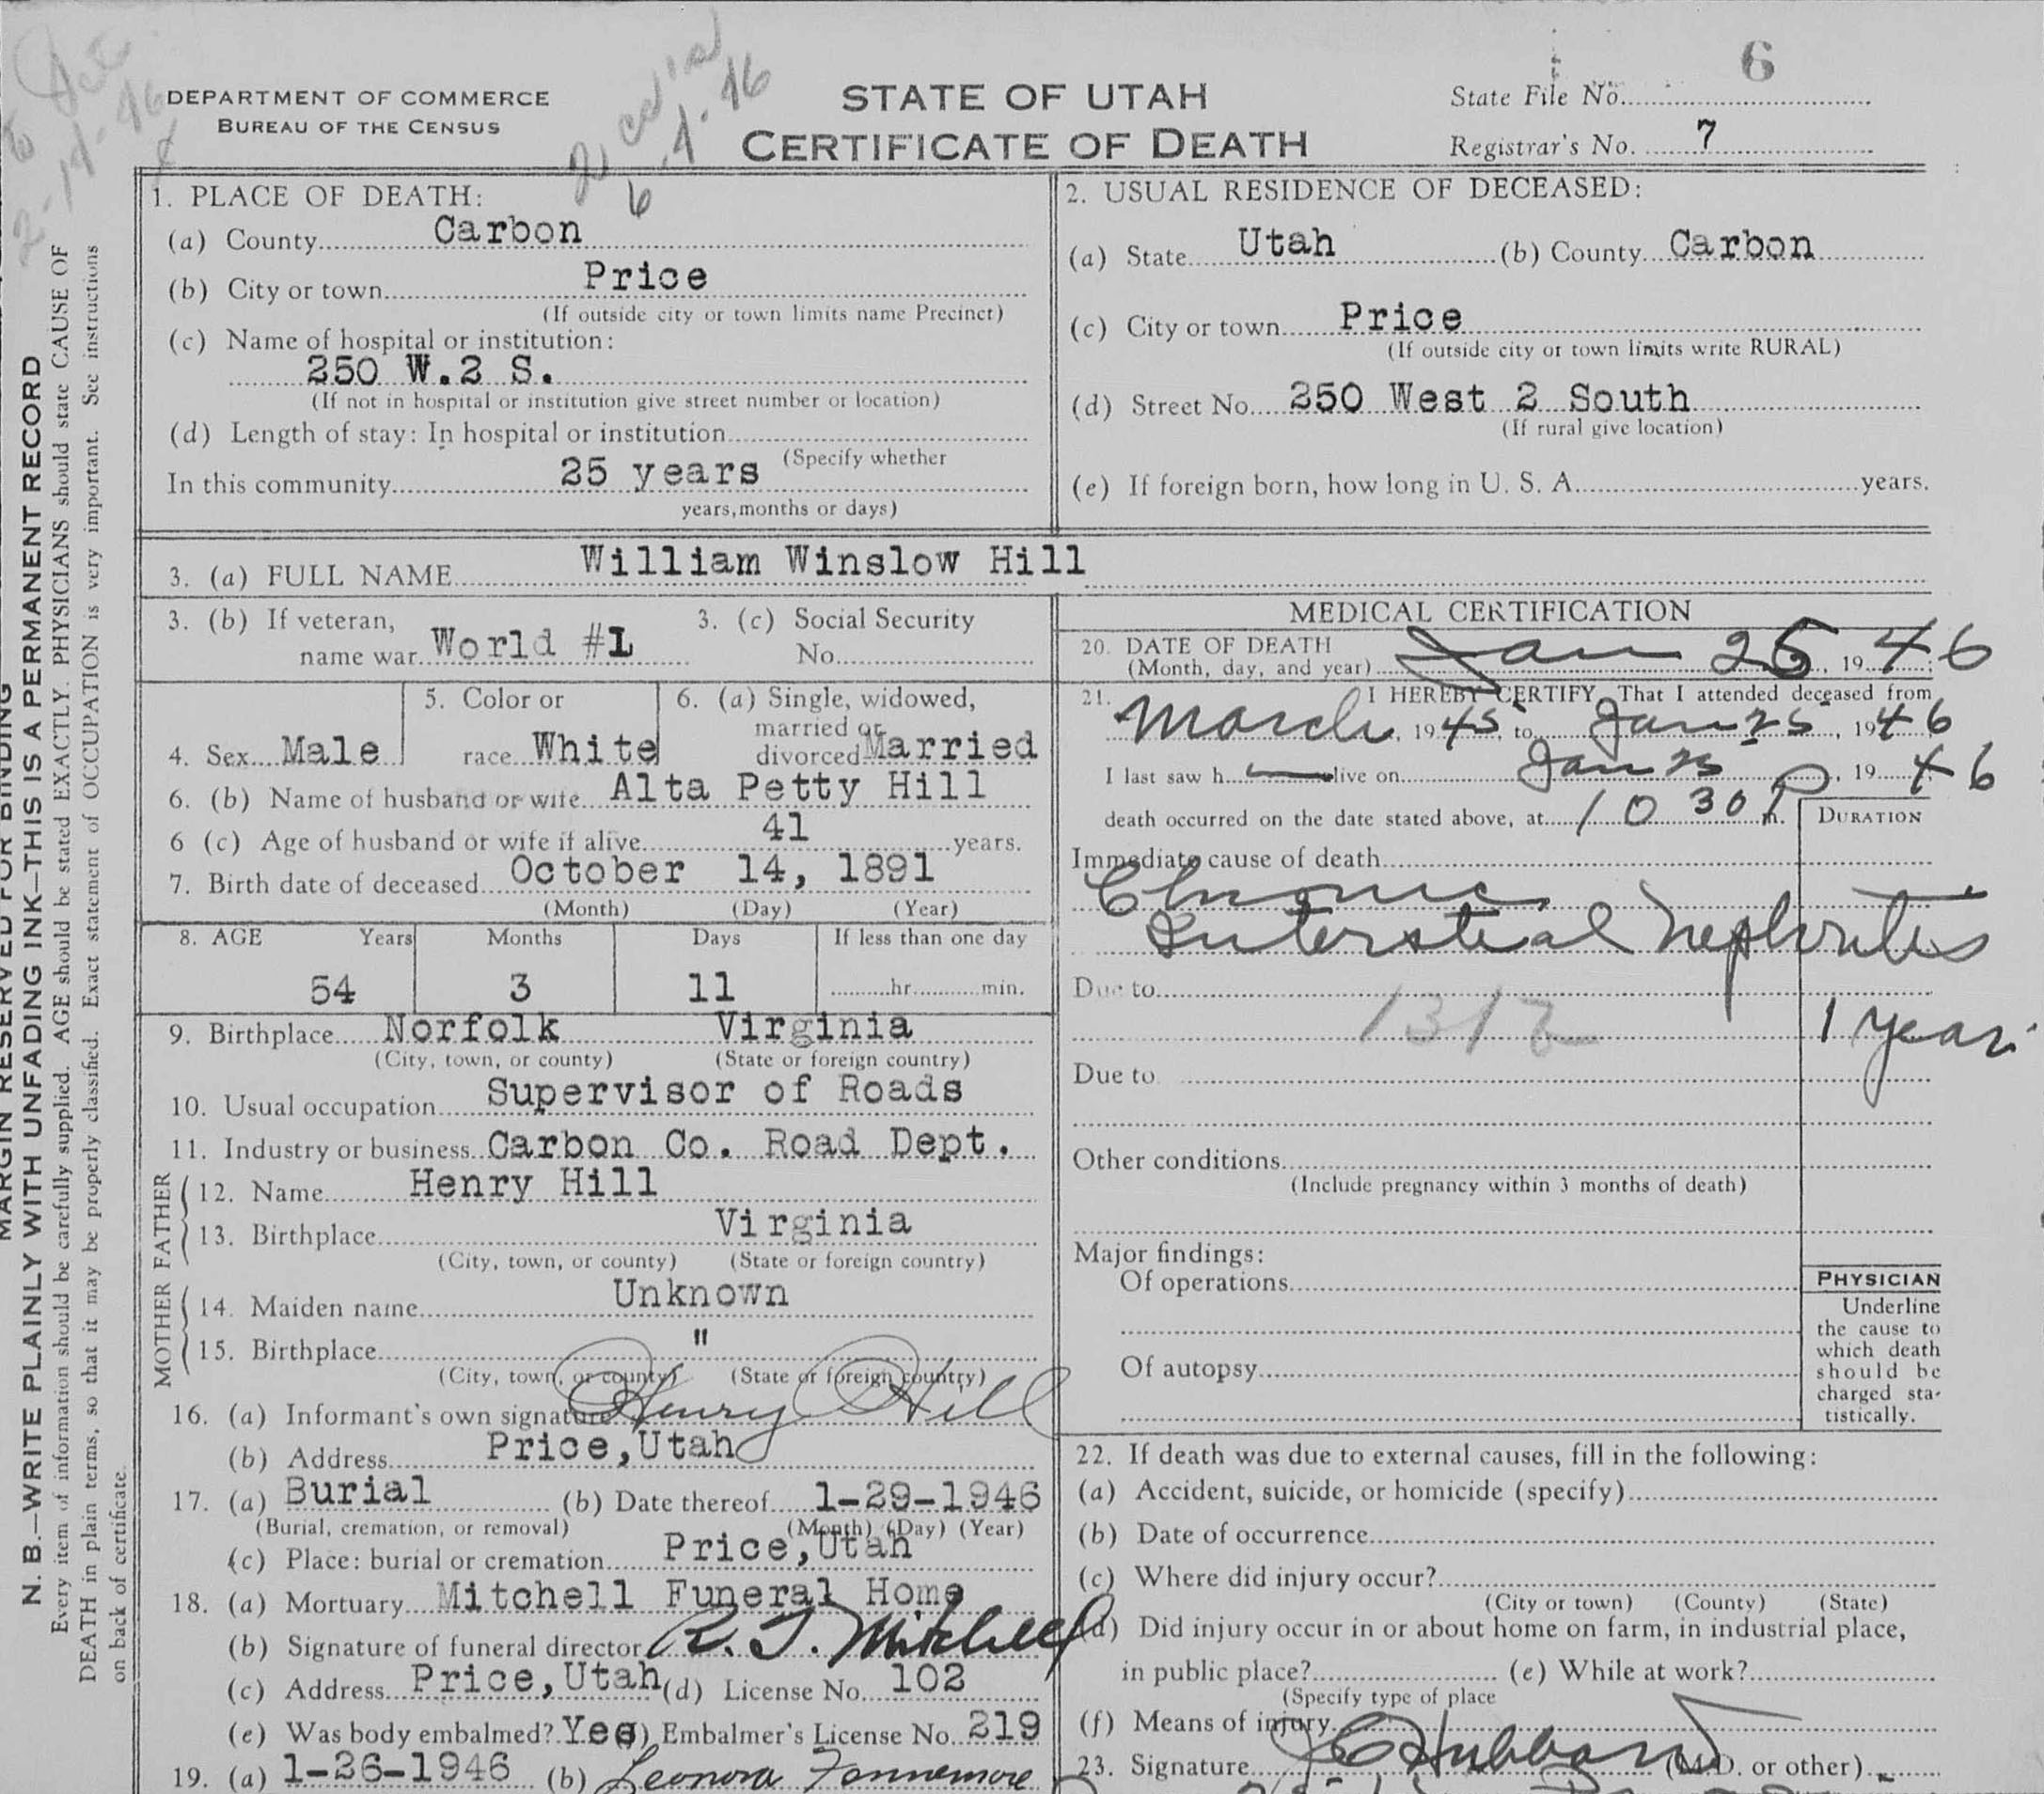 DEPARTMENT OF COMMERCE
BUREAU OF THE CENSUS
STATE OF UTAH
CERTIFICATE OF DEATH
State File No. 6
Registrar's No. 7
MARGIN RESERVED FOR BINDING
N. B.—WRITE PLAINLY WITH UNFADING INK—THIS IS A PERMANENT RECORD
Every item of information should be carefully supplied. AGE should be stated EXACTLY. PHYSICIANS should state CAUSE OF
DEATH in plain terms, so that it may be properly classified. Exact statement of OCCUPATION is very important. See instructions
on back of certificate.
1. PLACE OF DEATH:
(a) County Carbon
(b) City or town Price
(If outside city or town limits name Precinct)
(c) Name of hospital or institution:
250 W.2 S.
(If not in hospital or institution give street number or location)
(d) Length of stay: In hospital or institution
(Specify whether
In this community 25 years
years, months or days)
2. USUAL RESIDENCE OF DECEASED:
(a) State Utah (b) County Carbon
(c) City or town Price
(If outside city or town limits write RURAL)
(d) Street No. 250 West 2 South
(If rural give location)
(e) If foreign born, how long in U. S. A. years.
3. (a) FULL NAME William Winslow Hill
3. (b) If veteran,
name war World #1
3. (c) Social Security
No.
4. Sex Male
5. Color or
race White
6. (a) Single, widowed,
married or
divorced Married
6. (b) Name of husband or wife Alta Petty Hill
6 (c) Age of husband or wife if alive 41 years.
7. Birth date of deceased October 14, 1891
(Month) (Day) (Year)
8. AGE Years Months Days If less than one day
54 3 11 hr. min.
9. Birthplace Norfolk Virginia
(City, town, or county) (State or foreign country)
10. Usual occupation Supervisor of Roads
11. Industry or business Carbon Co. Road Dept.
FATHER
12. Name Henry Hill
13. Birthplace Virginia
(City, town, or county) (State or foreign country)
MOTHER
14. Maiden name Unknown
15. Birthplace "
(City, town, or county) (State or foreign country)
16. (a) Informant's own signature Henry Hill
(b) Address Price,Utah
17. (a) Burial (b) Date thereof 1-29-1946
(Burial, cremation, or removal) (Month) (Day) (Year)
(c) Place: burial or cremation Price,Utah
18. (a) Mortuary Mitchell Funeral Home
(b) Signature of funeral director R. J. Mitchell
(c) Address Price,Utah (d) License No. 102
(e) Was body embalmed? Yes (f) Embalmer's License No. 219
19. (a) 1-26-1946 (b) Leonora Fannemore
MEDICAL CERTIFICATION
20. DATE OF DEATH
(Month, day, and year) Jan 25, 1946
21. I HEREBY CERTIFY, That I attended deceased from
March, 1945, to Jan 25, 1946
I last saw h alive on Jan 25, 1946
death occurred on the date stated above, at 10 30 P m.
DURATION
Immediate cause of death
Chronic
Interstitial Nephritis
Due to
1 year
Due to
Other conditions
(Include pregnancy within 3 months of death)
Major findings:
Of operations
Of autopsy
PHYSICIAN
Underline
the cause to
which death
should be
charged sta-
tistically.
22. If death was due to external causes, fill in the following:
(a) Accident, suicide, or homicide (specify)
(b) Date of occurrence
(c) Where did injury occur?
(City or town) (County) (State)
(d) Did injury occur in or about home on farm, in industrial place,
in public place? (e) While at work?
(Specify type of place
(f) Means of injury
23. Signature J C Hubbard (M.D. or other)